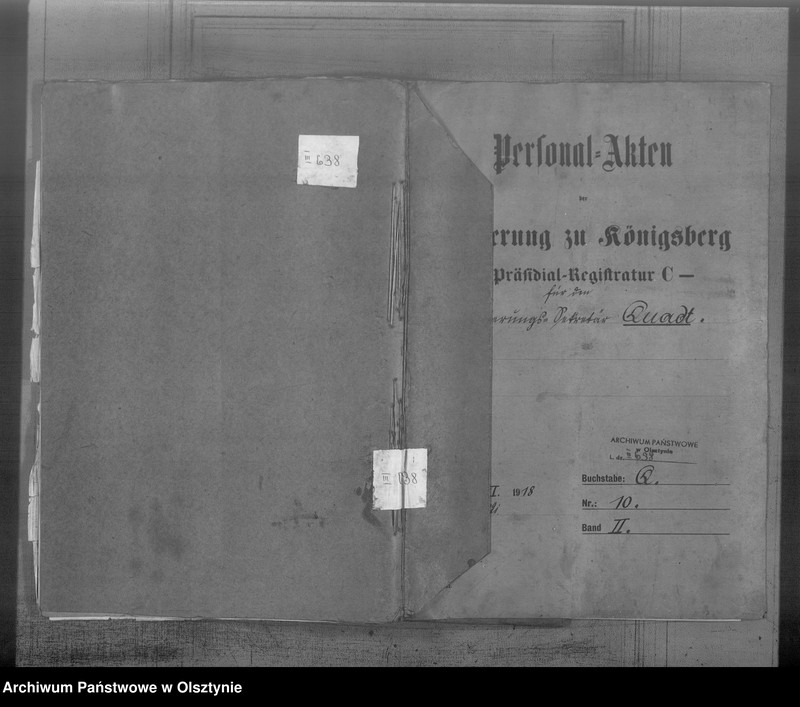 III 638
III 638
Personal-Akten
der
erung zu Königsberg
Präsidial-Registratur C —
für den
erungs-Sekretär Quadt.
ARCHIWUM PAŃSTWOWE
w Olsztynie
L. dz.
Buchstabe: Q.
I. 1918
Nr.: 10.
Band II.
Archiwum Państwowe w Olsztynie